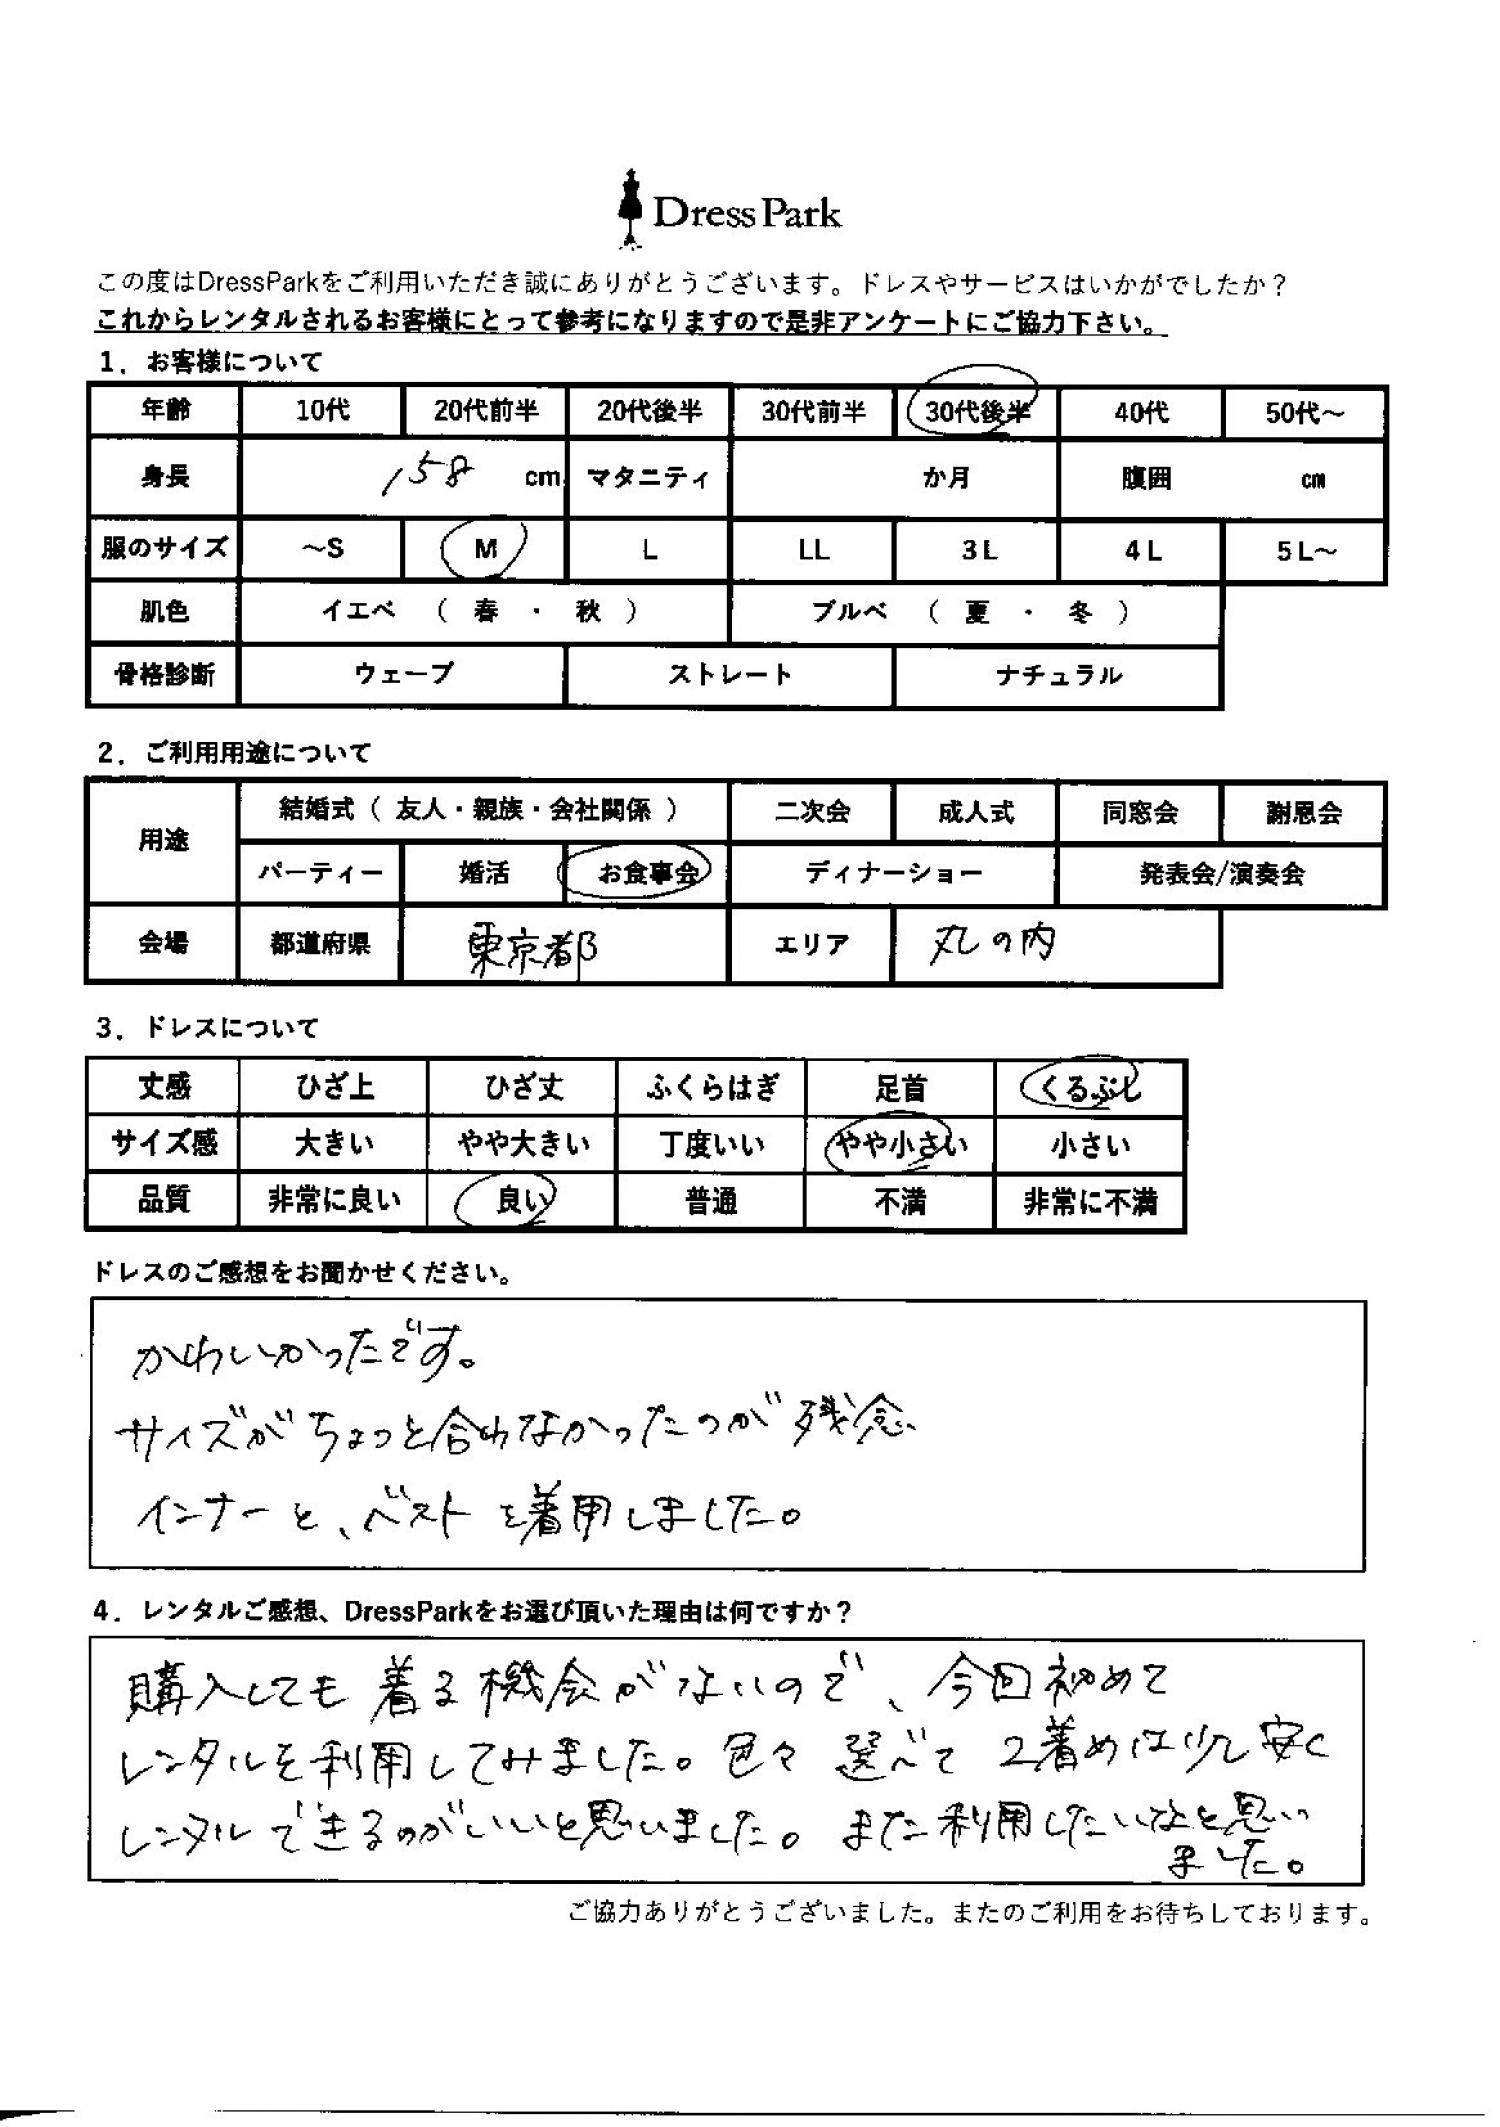 Dress Park
この度はDressParkをご利用いただき誠にありがとうございます。ドレスやサービスはいかがでしたか？
これからレンタルされるお客様にとって参考になりますので是非アンケートにご協力下さい。
1．お客様について
年齢 10代 20代前半 20代後半 30代前半 30代後半 40代 50代～
身長 158 cm マタニティ か月 腹囲 cm
服のサイズ ～S M L LL 3L 4L 5L～
肌色 イエベ （ 春 ・ 秋 ） ブルベ （ 夏 ・ 冬 ）
骨格診断 ウェーブ ストレート ナチュラル
2．ご利用用途について
用途 結婚式（ 友人・親族・会社関係 ） 二次会 成人式 同窓会 謝恩会
パーティー 婚活 お食事会 ディナーショー 発表会/演奏会
会場 都道府県 東京都 エリア 丸の内
3．ドレスについて
丈感 ひざ上 ひざ丈 ふくらはぎ 足首 くるぶし
サイズ感 大きい やや大きい 丁度いい やや小さい 小さい
品質 非常に良い 良い 普通 不満 非常に不満
ドレスのご感想をお聞かせください。
かわいかったです。
サイズがちょっと合わなかったのが残念
インナーと、ベストを着用しました。
4．レンタルご感想、DressParkをお選び頂いた理由は何ですか？
購入しても着る機会がないので、今回初めて
レンタルを利用してみました。色々選べて2着めは少し安く
レンタルできるのがいいと思いました。また利用したいなと思い
ました。
ご協力ありがとうございました。またのご利用をお待ちしております。